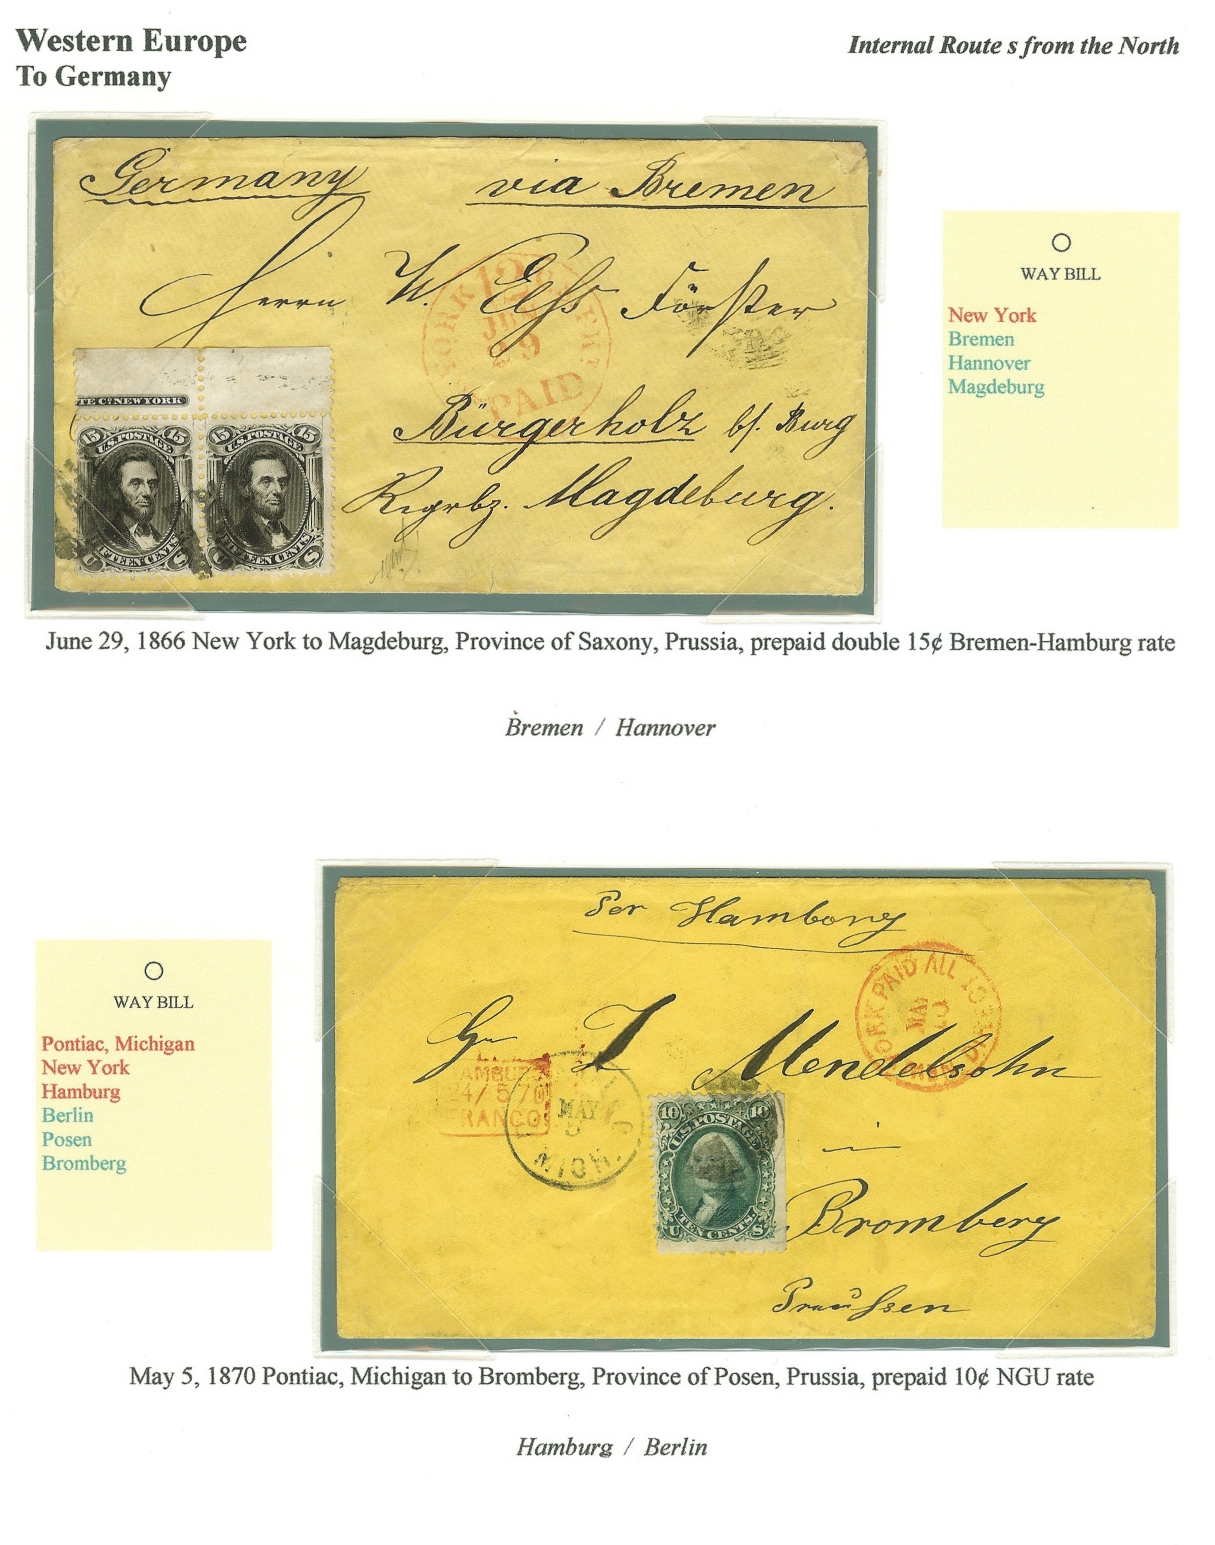 Western Europe
To Germany
Internal Route s from the North
Germany via Bremen
Herrn W. Förster
YORK 12 PKT
9
PAID
Bürgerholz b/. Burg
Magdeburg.
TE Co NEW YORK
15 U.S. POSTAGE 15
FIFTEEN CENTS
U S
15 U.S. POSTAGE 15
FIFTEEN CENTS
U S
WAY BILL
New York
Bremen
Hannover
Magdeburg
June 29, 1866 New York to Magdeburg, Province of Saxony, Prussia, prepaid double 15¢ Bremen-Hamburg rate
Bremen / Hannover
WAY BILL
Pontiac, Michigan
New York
Hamburg
Berlin
Posen
Bromberg
Per Hamborg
YORK PAID ALL
MAY
Mendelsohn
HAMBURG
24/ 5 70
FRANCO.
MAY
5
MICH.
10 10
U.S. POSTAGE
TEN CENTS.
U S
in
Bromberg
Preußsen
May 5, 1870 Pontiac, Michigan to Bromberg, Province of Posen, Prussia, prepaid 10¢ NGU rate
Hamburg / Berlin